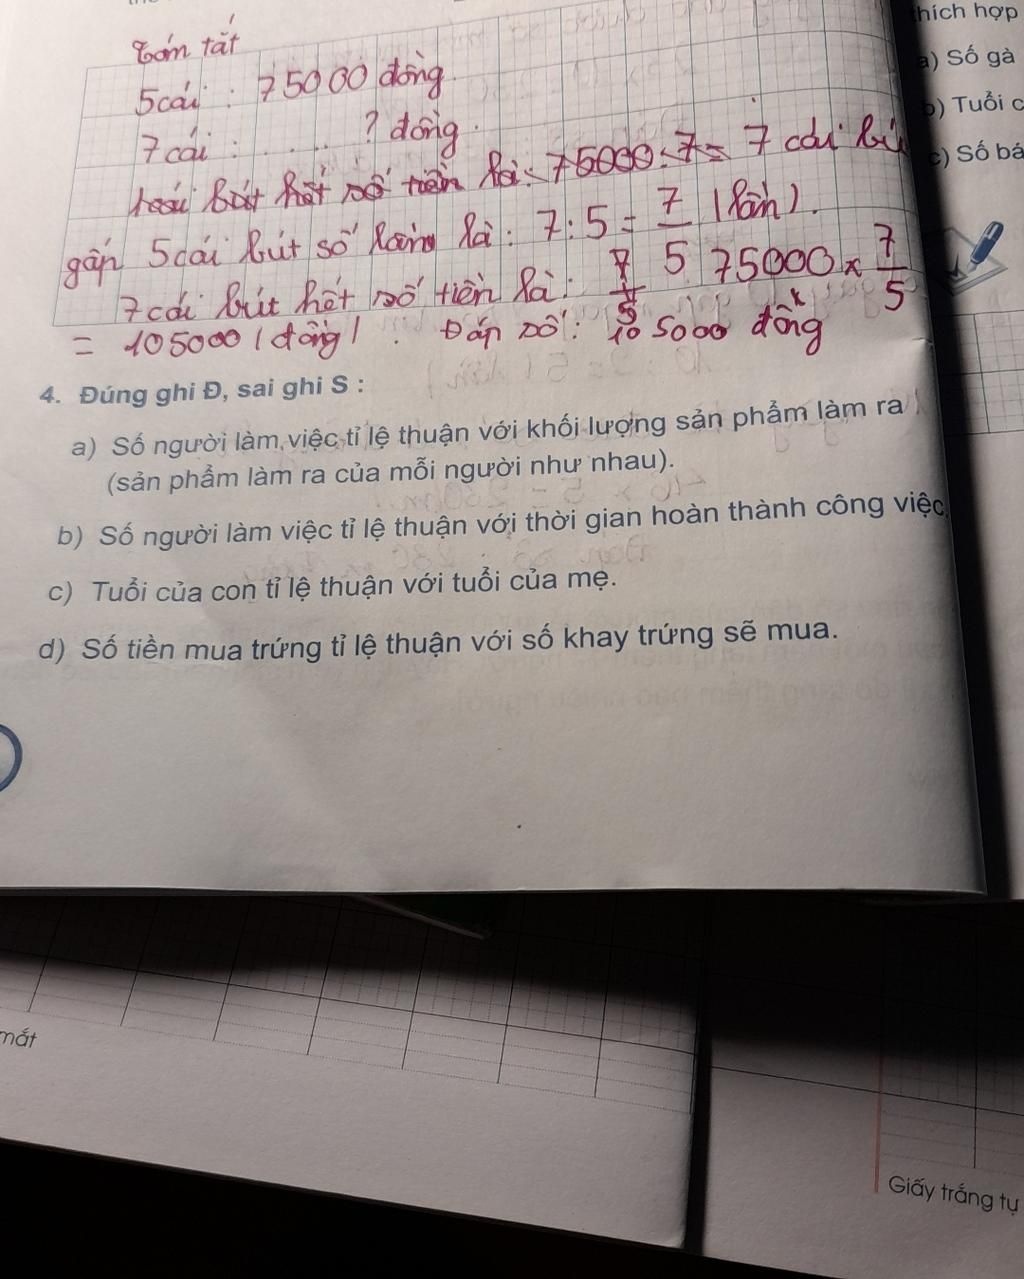 Tóm tắt
5cái : 75000 đồng
7 cái : ..... ? đồng.
bút hết số tiền là: 75000: 7= 7 cái bú
gấp 5cái bút số lần là: 7:5 = 7/5 (lần).
7cái bút hết số tiền là: 75000 x 7/5
= 105000 (đồng). Đáp số: 105000 đồng
4. Đúng ghi Đ, sai ghi S :
a) Số người làm việc tỉ lệ thuận với khối lượng sản phẩm làm ra
(sản phẩm làm ra của mỗi người như nhau).
b) Số người làm việc tỉ lệ thuận với thời gian hoàn thành công việc.
c) Tuổi của con tỉ lệ thuận với tuổi của mẹ.
d) Số tiền mua trứng tỉ lệ thuận với số khay trứng sẽ mua.
thích hợp
a) Số gà
b) Tuổi c
c) Số bá
mắt
Giấy trắng tự